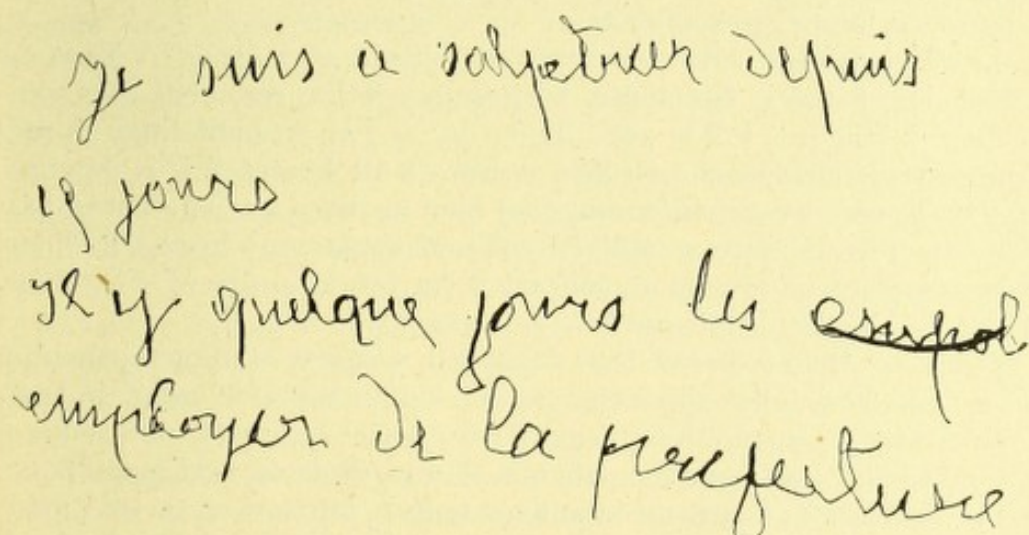 Je suis a salpetrier depuis
19 jours
Il y quelque jours les empol
employer de la prefecture